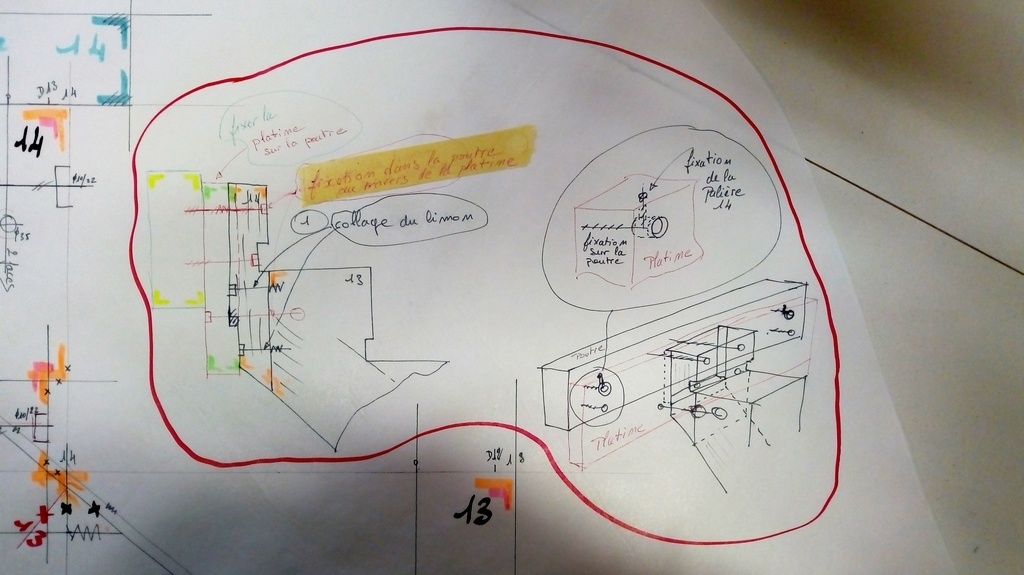 14
D13 14
14
φ35
2 faces
14
13
fixer la
platine
sur la poutre
fixation dans la poutre
au travers de la platine
1 collage du limon
14
13
fixation
de la
Palière
14
fixation
sur la
poutre
Platine
Poutre
Platine
13